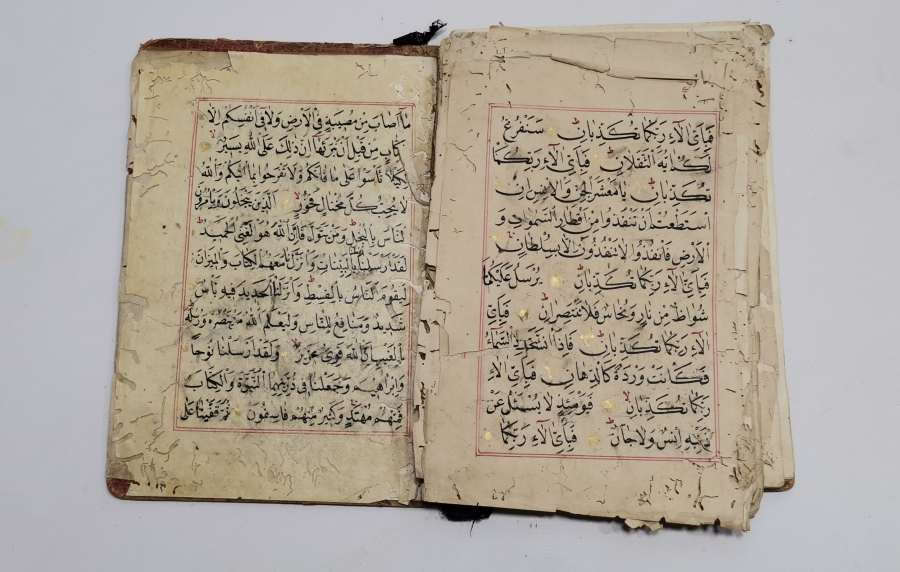 فبأي آلاء ربكما تكذبان سنفرغ
لكم أيه الثقلان فبأي آلاء ربكما
تكذبان يا معشر الجن والإنس إن
استطعتم أن تنفذوا من أقطار السموات و
الأرض فانفذوا لا تنفذون إلا بسلطان
فبأي آلاء ربكما تكذبان يرسل عليكما
شواظ من نار ونحاس فلا تنتصران فبأي
آلاء ربكما تكذبان فإذا انشقت السماء
فكانت وردة كالدهان فبأي آلاء
ربكما تكذبان فيومئذ لا يسئل عن
ذنبه إنس ولا جان فبأي آلاء ربكما
ما أصاب من مصيبة في الأرض ولا في أنفسكم إلا
كتاب من قبل أن نبرأها إن ذلك على الله يسير
لكيلا تأسوا على ما فاتكم ولا تفرحوا بما آتيكم والله
لا يحب كل مختال فخور الذين يبخلون ويأمرون
الناس بالبخل ومن يتول فإن الله هو الغني الحميد
لقد أرسلنا رسلنا بالبينات وأنزلنا معهم الكتاب والميزان
ليقوم الناس بالقسط وأنزلنا الحديد فيه بأس
شديد ومنافع للناس وليعلم الله من ينصره ورسله
بالغيب إن الله قوي عزيز ولقد أرسلنا نوحا
وإبراهيم وجعلنا في ذريتهما النبوة والكتاب
فمنهم مهتد وكثير منهم فاسقون ثم قفينا على